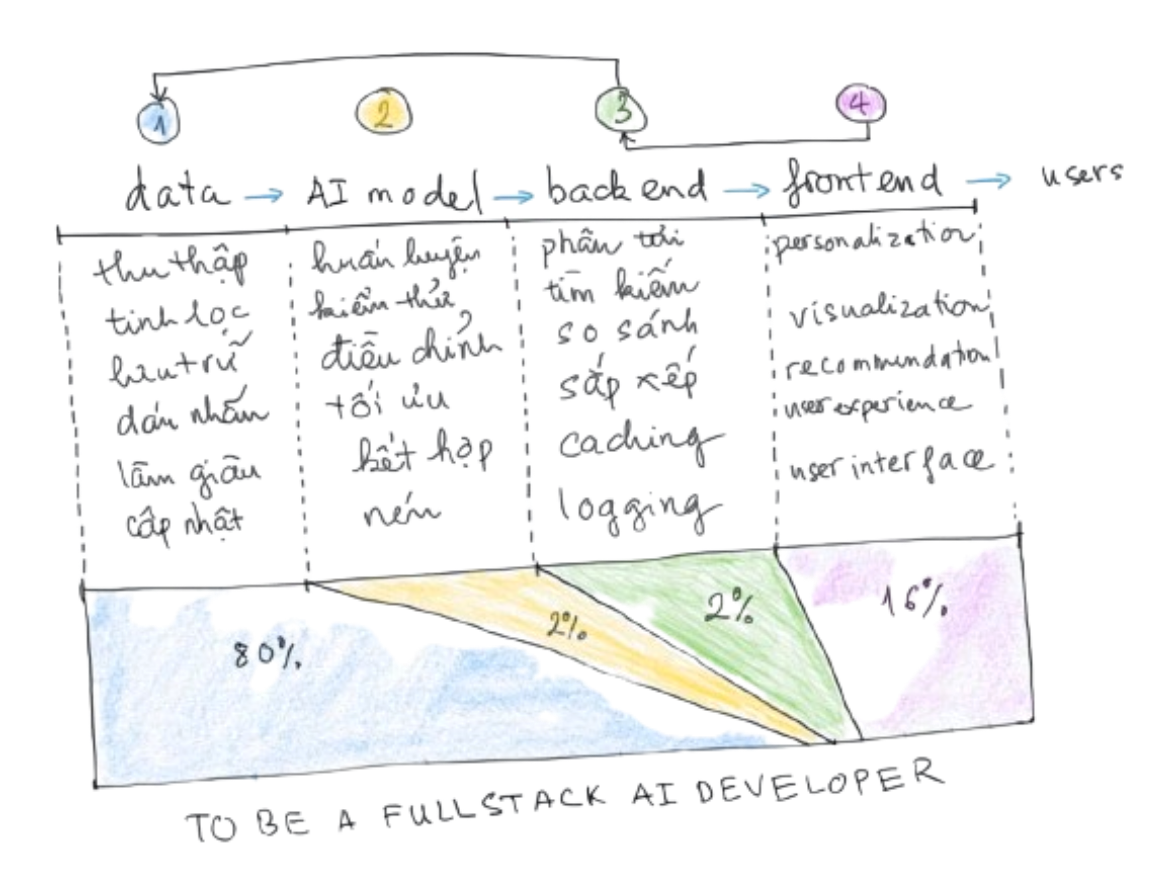 1 2 3 4
data → AI model → backend → frontend → users
thu thập
tinh lọc
lưu trữ
dán nhãn
làm giàu
cập nhật
huấn luyện
kiểm thử
điều chỉnh
tối ưu
kết hợp
nén
phân tải
tìm kiếm
so sánh
sắp xếp
caching
logging
personalization
visualization
recommendation
user experience
user interface
80%
2%
2%
16%
TO BE A FULLSTACK AI DEVELOPER